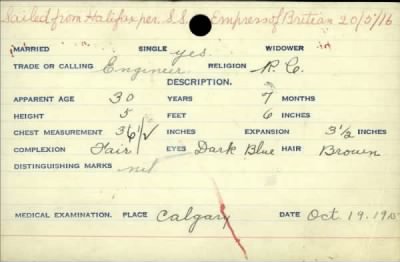 Sailed from Halifax per. S.S. Empress of Britian 20/5/16
MARRIED SINGLE yes. WIDOWER
TRADE OR CALLING Engineer RELIGION R. C.
DESCRIPTION.
APPARENT AGE 30 YEARS 7 MONTHS
HEIGHT 5 FEET 6 INCHES
CHEST MEASUREMENT 36 1/2 INCHES EXPANSION 3 1/2 INCHES
COMPLEXION Fair EYES Dark Blue HAIR Brown
DISTINGUISHING MARKS nil
MEDICAL EXAMINATION. PLACE Calgary DATE Oct. 19. 19